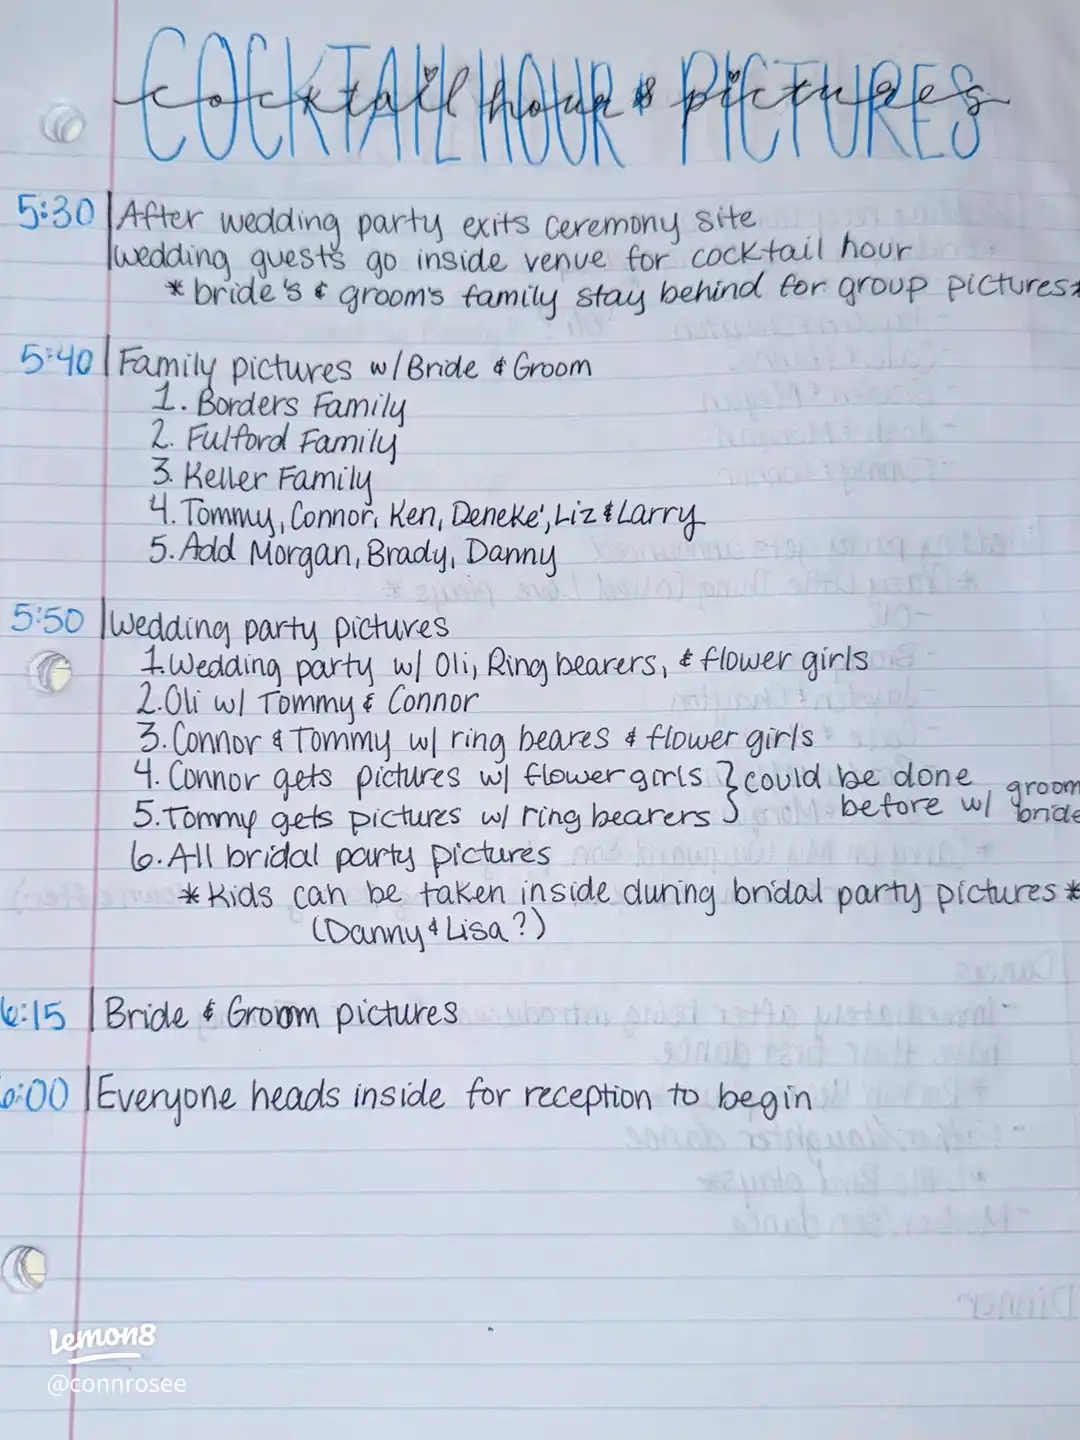 COCKTAIL HOUR & PICTURES
cocktail hour & pictures
5:30 After wedding party exits ceremony site
wedding guests go inside venue for cocktail hour
* bride's & groom's family stay behind for group pictures*
5:40 Family pictures w/Bride & Groom
1. Borders Family
2. Fulford Family
3. Keller Family
4. Tommy, Connor, Ken, Deneké, Liz & Larry
5. Add Morgan, Brady, Danny
5:50 Wedding party pictures
1. Wedding party w/ Oli, Ring bearers, & flower girls
2. Oli w/ Tommy & Connor
3. Connor & Tommy w/ ring beares & flower girls
4. Connor gets pictures w/ flower girls } could be done groom
5. Tommy gets pictures w/ ring bearers } before w/ bride
6. All bridal party pictures
* Kids can be taken inside during bridal party pictures *
(Danny & Lisa?)
6:15 Bride & Groom pictures
6:00 Everyone heads inside for reception to begin
lemon8
@connrosee